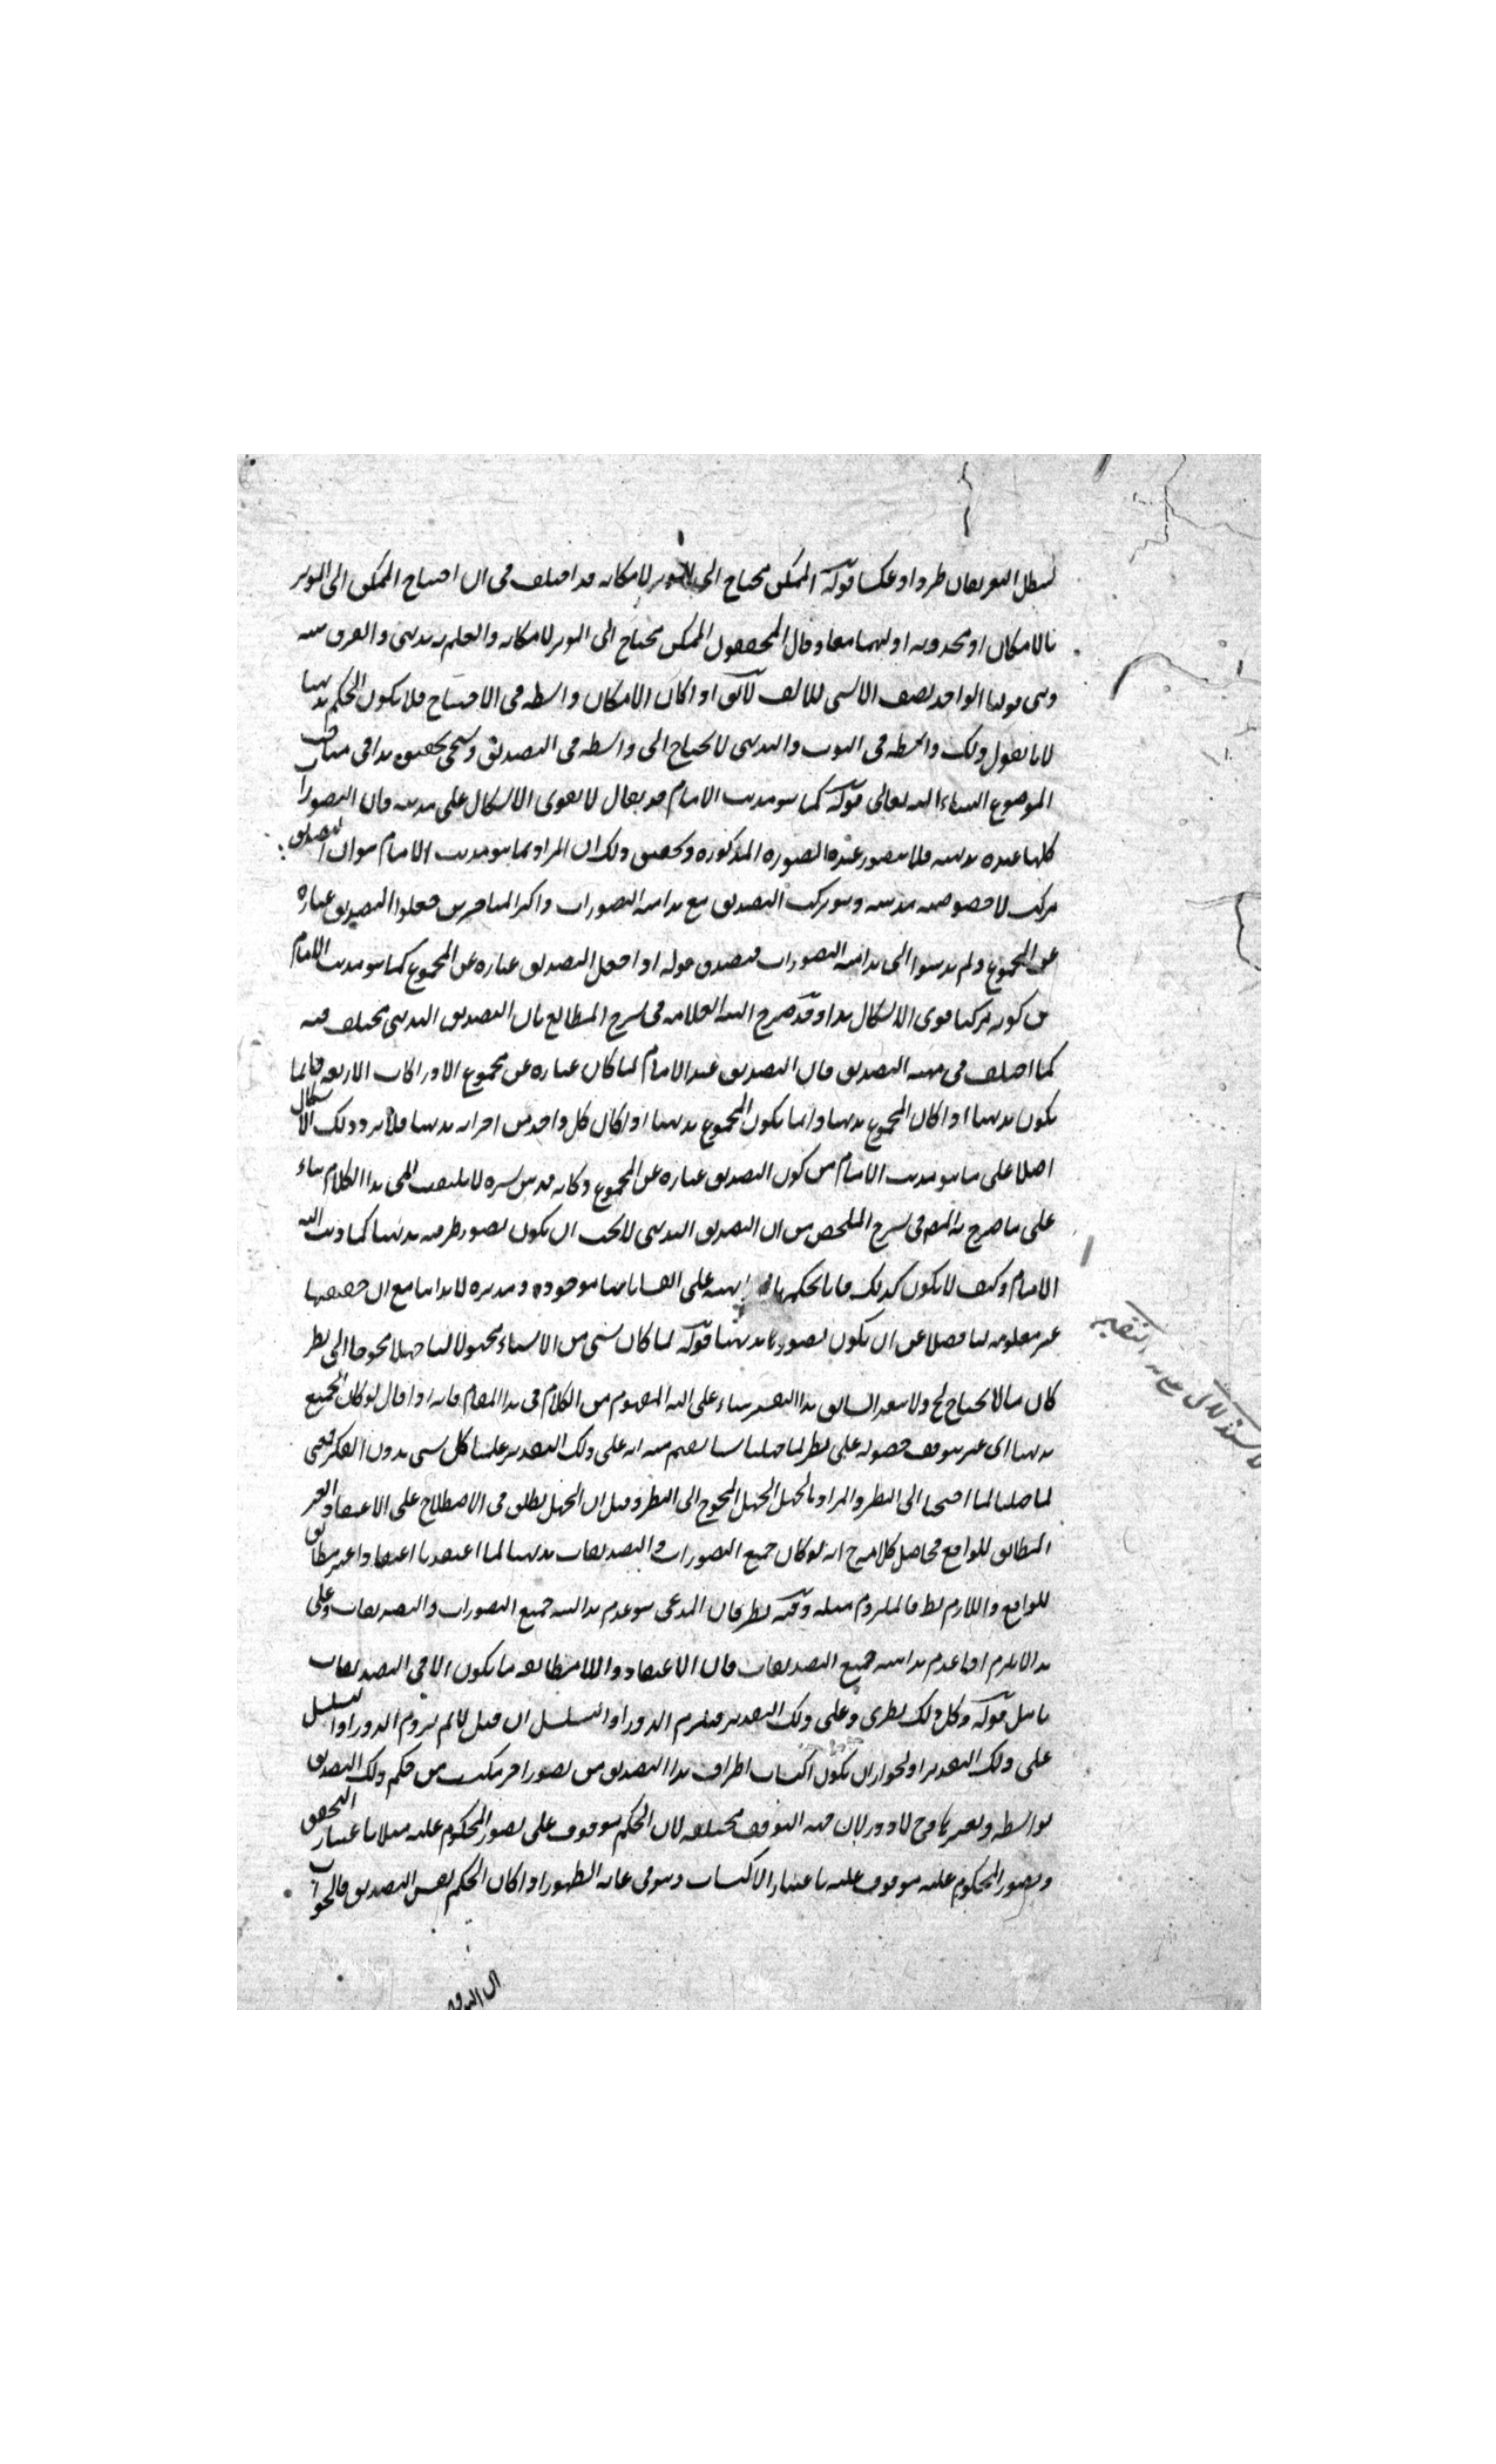 لبطل التعريفان طردا وعكسا قوله الممكن محتاج الى المؤثر لامكانه قد اختلف في ان احتياج الممكن الى المؤثر
بالامكان او بحدوثه او بهما معا وقال المحققون الممكن محتاج الى المؤثر لامكانه والعلم به بديهي والفرق بينه
وبين قولنا الواحد نصف الاثنين للالف لا يق اذا كان الامكان واسطه في الاحتياج فلا يكون الحكم بديهيا
لانا نقول ذلك واسطه في الثبوت والبديهي لا يحتاج الى واسطه في التصديق وسيجي تحقيق هذا في مباحث
الموضوع ان شاء الله تعالى قوله كما هو مذهب الامام قد يقال لا يقوى الاشكال على مذهبه فان التصورات
كلها عنده بديهيه فلا يتصور عنده الصوره المذكوره وتحقيق ذلك ان المراد بما هو مذهب الامام هو ان التصديق
مركب لا خصوصيه مذهبه وهو تركب التصديق مع بداهه التصورات واكثر المتاخرين جعلوا التصديق عباره
عن المجموع ولم يذهبوا الى بداهه التصورات فيصدق قوله اذا جعل التصديق عباره عن المجموع كما هو مذهب الامام
من كونه مركبا قوى الاشكال هذا وقد صرح العلامه في شرح المطالع بان التصديق البديهي مختلف فيه
كما اختلف في مهيه التصديق فان التصديق عند الامام لما كان عباره عن مجموع الادراكات الاربعه فانما
يكون بديهيا اذا كان المجموع بديهيا وانما يكون المجموع بديهيا اذا كان كل واحد من اجزائه بديهيا فلا يرد ذلك الاشكال
اصلا على ما هو مذهب الامام من كون التصديق عباره عن المجموع وكانه قدس سره لا يلتفت الى هذا الكلام بناء
على ما صرح به المص في شرح الملخص من ان التصديق البديهي لا يجب ان يكون تصور طرفيه بديهيا كما ذهب اليه
الامام وكيف لا يكون كذلك فانا نحكم على موجوده ومدبره لابداننا مع ان حقيقتها
غير معلومه لنا فضلا عن ان يكون تصورها بديهيا قوله لما كان شي من الاشياء مجهولا لنا جهلا محوجا الى نظر
كان مما لا يحتاج ح ولا بعد التفسير بناء على المفهوم من الكلام في هذا المقام فانه اذا قال لو كان الجميع
بديهيا اى غير متوقف حصوله على نظر لما جهلنا شيئا يفهم منه انه على ذلك التقدير علمنا كل شي بدون الفكر فمعنى
لما جهلنا لما احتجنا الى النظر والمراد بالجهل الجهل المحوج الى النظر وقيل ان الجهل يطلق في الاصطلاح على الاعتقاد الغير
المطابق للواقع فحاصل كلامه ح انه لو كان جميع التصورات والتصديقات بديهيا لما اعتقدنا اعتقادا غير مطابق
للواقع واللازم بط فالملزوم مثله وفيه نظر فان المدعى هو عدم بداهه جميع التصورات والتصديقات وعلى
هذا لا يلزم الا عدم بداهه جميع التصديقات فان الاعتقاد واللا مطابقه ما يكون الا في التصديقات
تامل قوله وكل ذلك نظرى وعلى ذلك التقدير فيلزم الدور او التسلسل ان قيل لا نم لزوم الدور او التسلسل
على ذلك التقدير او لجواز ان يكون اكتساب اطراف هذا التصديق من تصور اخر مكتسب من حكم ذلك التصديق
بواسطه وبغيرها وح لا دور لان جهه التوقف مختلفه لان الحكم موقوف على تصور المحكوم عليه مثلا باعتبار التحقق
وتصور المحكوم عليه موقوف عليه باعتبار الاكتساب وهو في غايه الظهور اذا كان الحكم نفس التصديق فالجواب
ان التوقف